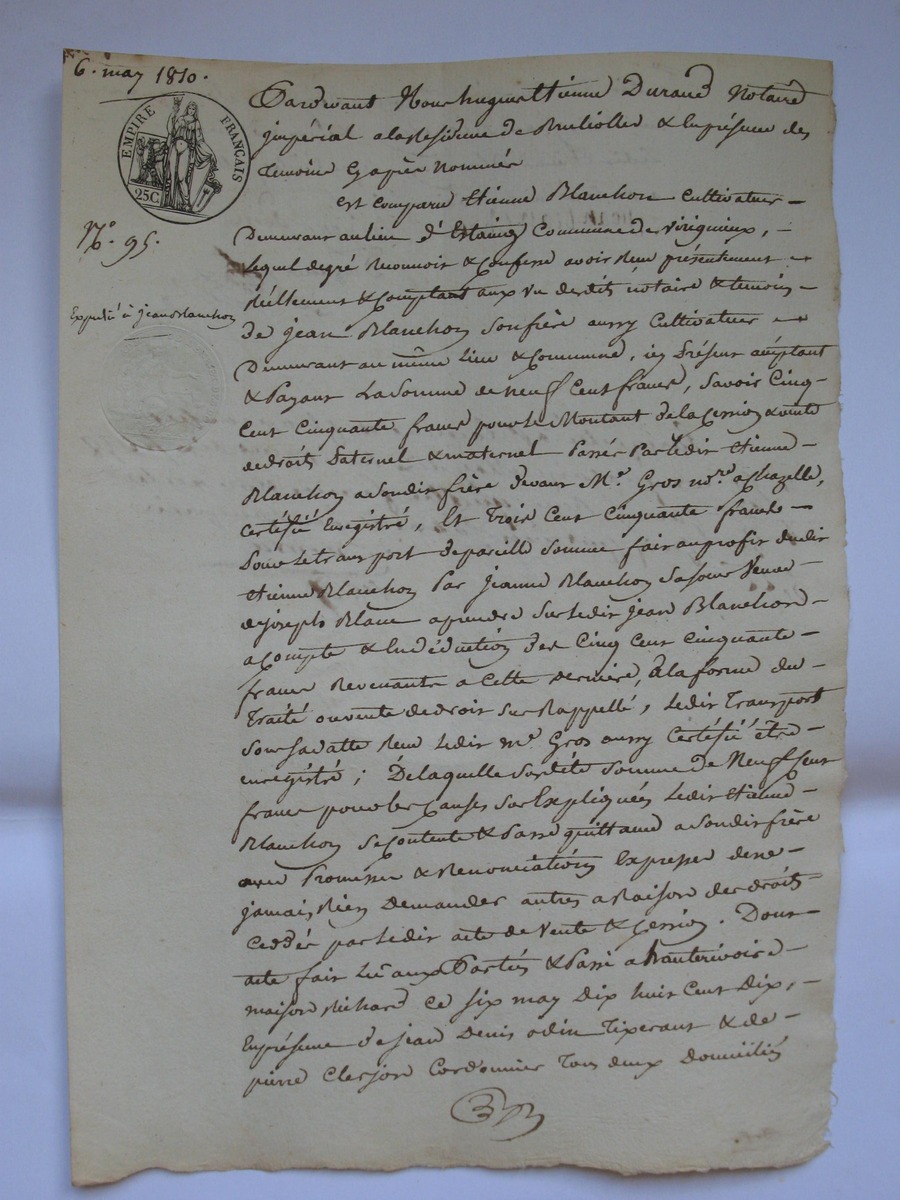 6. may 1810.
EMPIRE FRANÇAIS
25C
N.° 95.
Expedié à jean Blanchon
Pardevant Nous hugues Etienne Durand Notaire
jmpérial a la Residence de Brulliolles & En présence des
Temoins Cy après Nommés
Est comparu Etienne Blanchon Cultivateur –
Demeurant au lieu d'Estaing Commune de Virigneux, –
Lequel de gré Reconnoit & Confesse avoir Reçu présentement –
Réellement & Comptant aux vu desdits notaire & temoins –
de jean Blanchon son frère aussy Cultivateur –
Demeurant au même Lieu & Commune, icy Présent acceptant
& Payant La Somme de neuf Cent francs, Savoir Cinq –
Cent Cinquante francs pour le Montant de la Cession & vente
de droits Paternel & maternel Passés Par Ledit Etienne –
Blanchon a Son dit frère devant M.e Gros no.re a Chazelle,
Certifié Enregistré, Et Trois Cent Cinquante francs –
Pour Le transport de pareille Somme fait au profit dudit
Etienne Blanchon Par jeanne Blanchon Sa Sœur Veuve –
de joseph Blanc a prendre Sur Ledit jean Blanchon –
a Compte & En déduction des Cinq Cent Cinquante –
francs Revenants a Cette derniere, à la forme du –
Traité ou vente de droit Sus Rappellé, Ledit Transport
Sous Sa datte Reçu Ledit m.e Gros aussy Certifié être –
enregistré; De laquelle Susdite Somme de Neuf Cent
francs pour les Causes Sus Expliquées Ledit Etienne –
Blanchon Se Contente & Passe quittance a Son dit frère
avec Promesse & Renonciation Expresse de ne –
jamais Rien Demander autres a Raison des droits
Ceddés par Ledit acte de Vente & Cession. Dont –
acte fait Lû aux Parties & Passé a hauterivoire –
maison Richard Ce Six may Dix huit Cent Dix, –
En présence de jean Denis odin Tixerant & de –
pierre Clerjon Cordonnier Tous deux Domiciliés